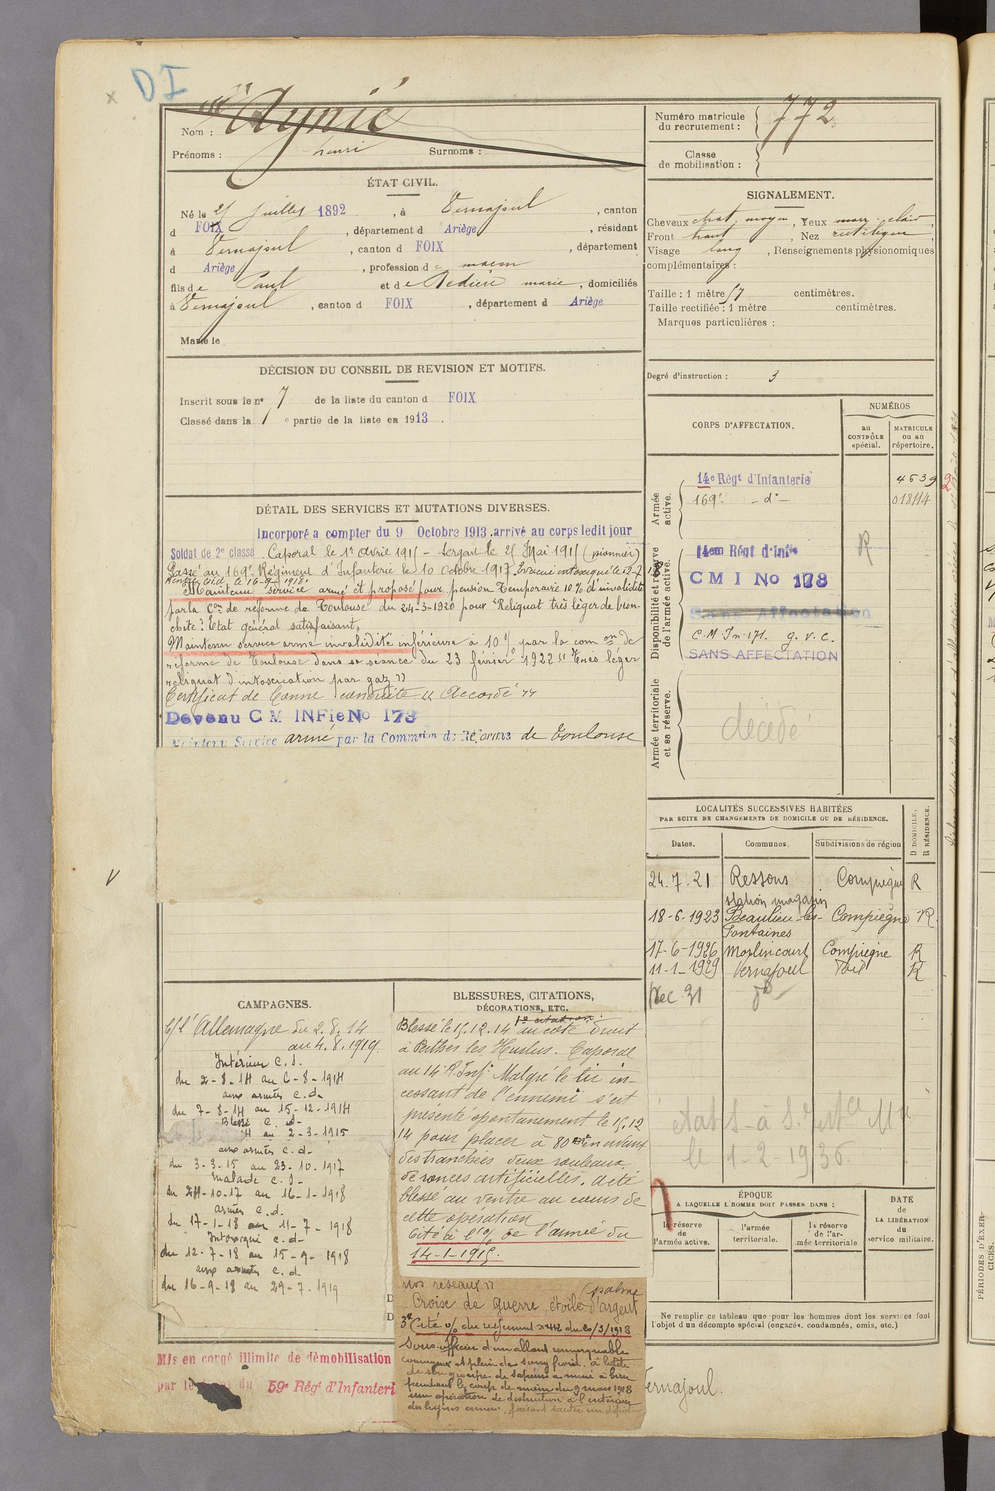 DI
Nom : Aynié
Prénoms : henri Surnoms :
ÉTAT CIVIL.
Né le 25 juillet 1892, à Vernajoul, canton
d FOIX, département d Ariège, résidant
à Vernajoul, canton d FOIX, département
d Ariège, profession d e maçon
fils de Paul et de Dedieu marie, domiciliés
à Vernajoul, canton d FOIX, département d Ariège
Marié le
DÉCISION DU CONSEIL DE REVISION ET MOTIFS.
Inscrit sous le n° 7 de la liste du canton d FOIX
Classé dans la 1 e partie de la liste en 1913.
DÉTAIL DES SERVICES ET MUTATIONS DIVERSES.
Incorporé a compter du 9 Octobre 1913 arrivé au corps ledit jour
Soldat de 2e classe. Caporal le 1er avril 1915 - Sergent le 25 Mai 1915 (pionnier)
Passé au 169e Régiment d'Infanterie le 10 Octobre 1917. Evacué intoxiqué le 12-7-18
le 16-9-1918.
Maintenu service armé et proposé pour pension temporaire 10% d'invalidité
par la Con de réforme de Toulouse du 24-3-1920 pour "Reliquat très léger de bron-
chite? Etat général satisfaisant.
Maintenu service armé invalidité inférieure à 10% par la com on de
réforme de Toulouse dans sa séance du 23 février 1922 "Très léger
reliquat d'intoxication par gaz"
Certificat de bonne conduite "Accordé"
Devenu C M INFie No 178
Maintenu Service armé par la Commson de Réforme de Toulouse
CAMPAGNES.
C/ l'Allemagne du 2.8.14
au 4.8.1919.
Intérieur C.S.
du 2-8-14 au 6-8-1914
aux armées C.d.
du 7-8-14 au 15-12-1914
Blessé C.d-
14 au 2-3-1915
aux armées C.d-
du 3-3-15 au 23-10.1917
malade C.S-
du 24-10.17 au 16-1-1918
armées C.d.
du 17-1-18 au 11-7-1918
Intoxiqué C.d-
du 12-7-18 au 15-9-1918
aux armées C.d.
du 16-9-18 au 29-7-1919
Mis en congé illimité de démobilisation
par le du 59e Régt d'Infanterie
BLESSURES, CITATIONS,
DÉCORATIONS, ETC.
1e citation:
Blessé le 15.12.14 au côté droit
à Perthes les Hurlus. Caporal
au 14e R. Inf. Malgré le tir in-
cessant de l'ennemi s'est
présenté spontanement le 15.12
14 pour placer à 80m en avant
des tranchées deux rouleaux
de ronces artificielles. a été
blessé au ventre au cours de
cette opération
Cité à l'% de l'armée du
14-1-1915.
nos réseaux"
(palme
Croix de guerre, étoile d'argent
3e Cité % du régiment n° 412 du 20/3/1918
Sous-officier d'un allant remarquable
courageux et plein de sang froid. à la tête
de son groupe de sapeurs a mené à bien
pendant le coup de main du 9 mars 1918
une opération de destruction à l'intérieur
des lignes ennem. faisant sauter un dépôt
Numéro matricule
du recrutement : 772
Classe
de mobilisation :
SIGNALEMENT.
Cheveux chat. moyen, Yeux marr. clair
Front haut, Nez rectiligne,
Visage long, Renseignements physionomiques
complémentaires :
Taille : 1 mètre 67 centimètres.
Taille rectifiée : 1 mètre centimètres.
Marques particulières :
Degré d'instruction : 3
CORPS D'AFFECTATION.
NUMÉROS
au
CONTRÔLE
spécial.
MATRICULE
ou au
répertoire.
Armée
active.
14e Régt d'Infanterie 4639
169e -d°- 018114
Disponibilité et réserve
de l'armée active.
14em Régt d'Infie R
C M I No 178
Sans Affectation
C.M. In. 171. G.V.C.
SANS AFFECTATION
Armée territoriale
et sa réserve.
décédé
LOCALITÉS SUCCESSIVES HABITÉES
PAR SUITE DE CHANGEMENTS DE DOMICILE OU DE RÉSIDENCE.
Dates. Communes. Subdivisions de région D DOMICILE, R RÉSIDENCE.
24.7.21 Ressons Compiègne R
station magasin
18-6-1923 Beaulieu-les- Compiègne R
Fontaines
17-6-1926 Morlincourt Compiegne R
11-1-1929 Vernajoul Foix R
Dec 31 do
le 4-2-1936.
ÉPOQUE
A LAQUELLE L'HOMME DOIT PASSER DANS :
la réserve
de
l'armée active.
l'armée
territoriale.
la réserve
de l'ar-
mée territoriale
DATE
de
LA LIBÉRATION
du
service militaire.
Ne remplir ce tableau que pour les hommes dont les services font
l'objet d'un décompte spécial (engagés, condamnés, omis, etc.)
Vernajoul.
PÉRIODES D'EXER-
CICES.